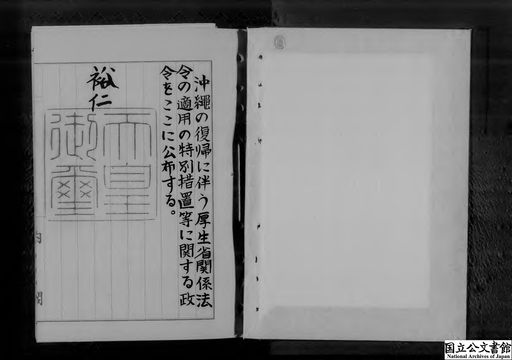 沖縄の復帰に伴う厚生省関係法
令の適用の特別措置等に関する政
令をここに公布する。
裕仁
天皇
御璽
内
閣
国立公文書館
National Archives of Japan